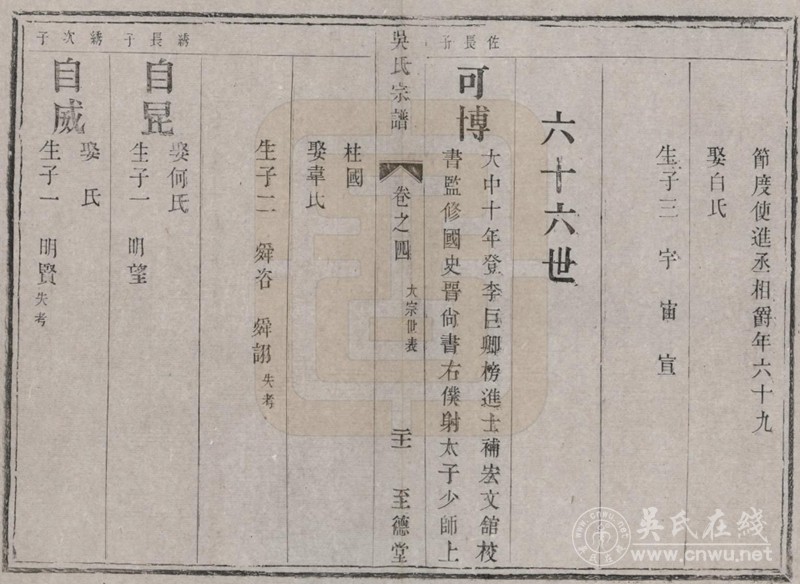 節度使進丞相爵年六十九
娶白氏
生子三 宇 宙 宣
六十六世
佐長子
可博
大中十年登李巨卿榜進士補宏文舘校
書監修國史晋尙書右僕射太子少師上
吳氏宗譜 卷之四 大宗世表 二十一 至德堂
柱國
娶韋氏
生子二 舜咨 舜詡 失考
琇長子
自昆
娶何氏
生子一 明望
琇次子
自威
娶 氏
生子一 明賢 失考
吳氏在綫
www.cnwu.net